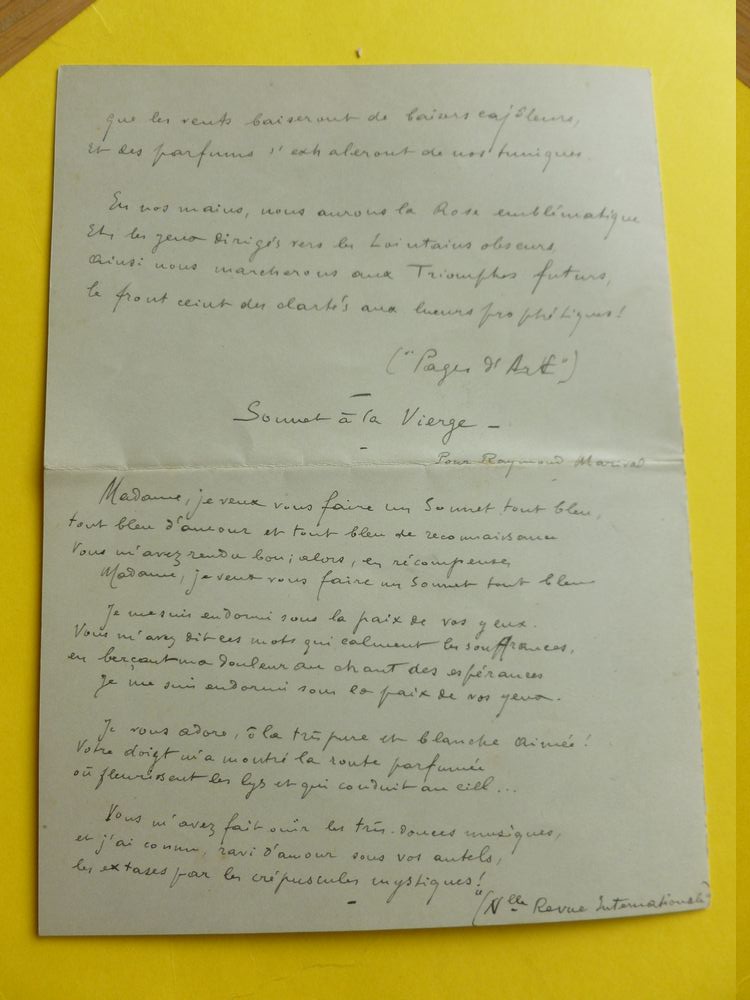 que les vents baiseront de baisers cajôleurs,
Et des parfums s'exhaleront de nos tuniques.
En nos mains, nous aurons la Rose emblématique
Et, les yeux dirigés vers les Lointains obscurs,
Ainsi nous marcherons aux Triomphes futurs,
le front ceint des clartés aux lueurs prophétiques!
("Pages d'Art")
Sonnet à la Vierge -
Pour Raymond Marival
Madame, je veux vous faire un Sonnet tout bleu,
tout bleu d'amour et tout bleu de reconnaissance
Vous m'avez rendu bon; alors, en récompense,
Madame, je veux vous faire un Sonnet tout bleu
Je me suis endormi sous la paix de vos yeux.
Vous m'avez dit ces mots qui calment les souffrances,
en berçant ma douleur au chant des espérances
Je me suis endormi sous la paix de vos yeux.
Je vous adore, ô la très pure et blanche Aimée!
Votre doigt m'a montré la route parfumée
où fleurissent les lys et qui conduit au ciel...
Vous m'avez fait ouïr les très-douces musiques,
et j'ai connu, ravi d'amour sous vos autels,
les extases par les crépuscules mystiques!
("Nlle Revue Internationale"